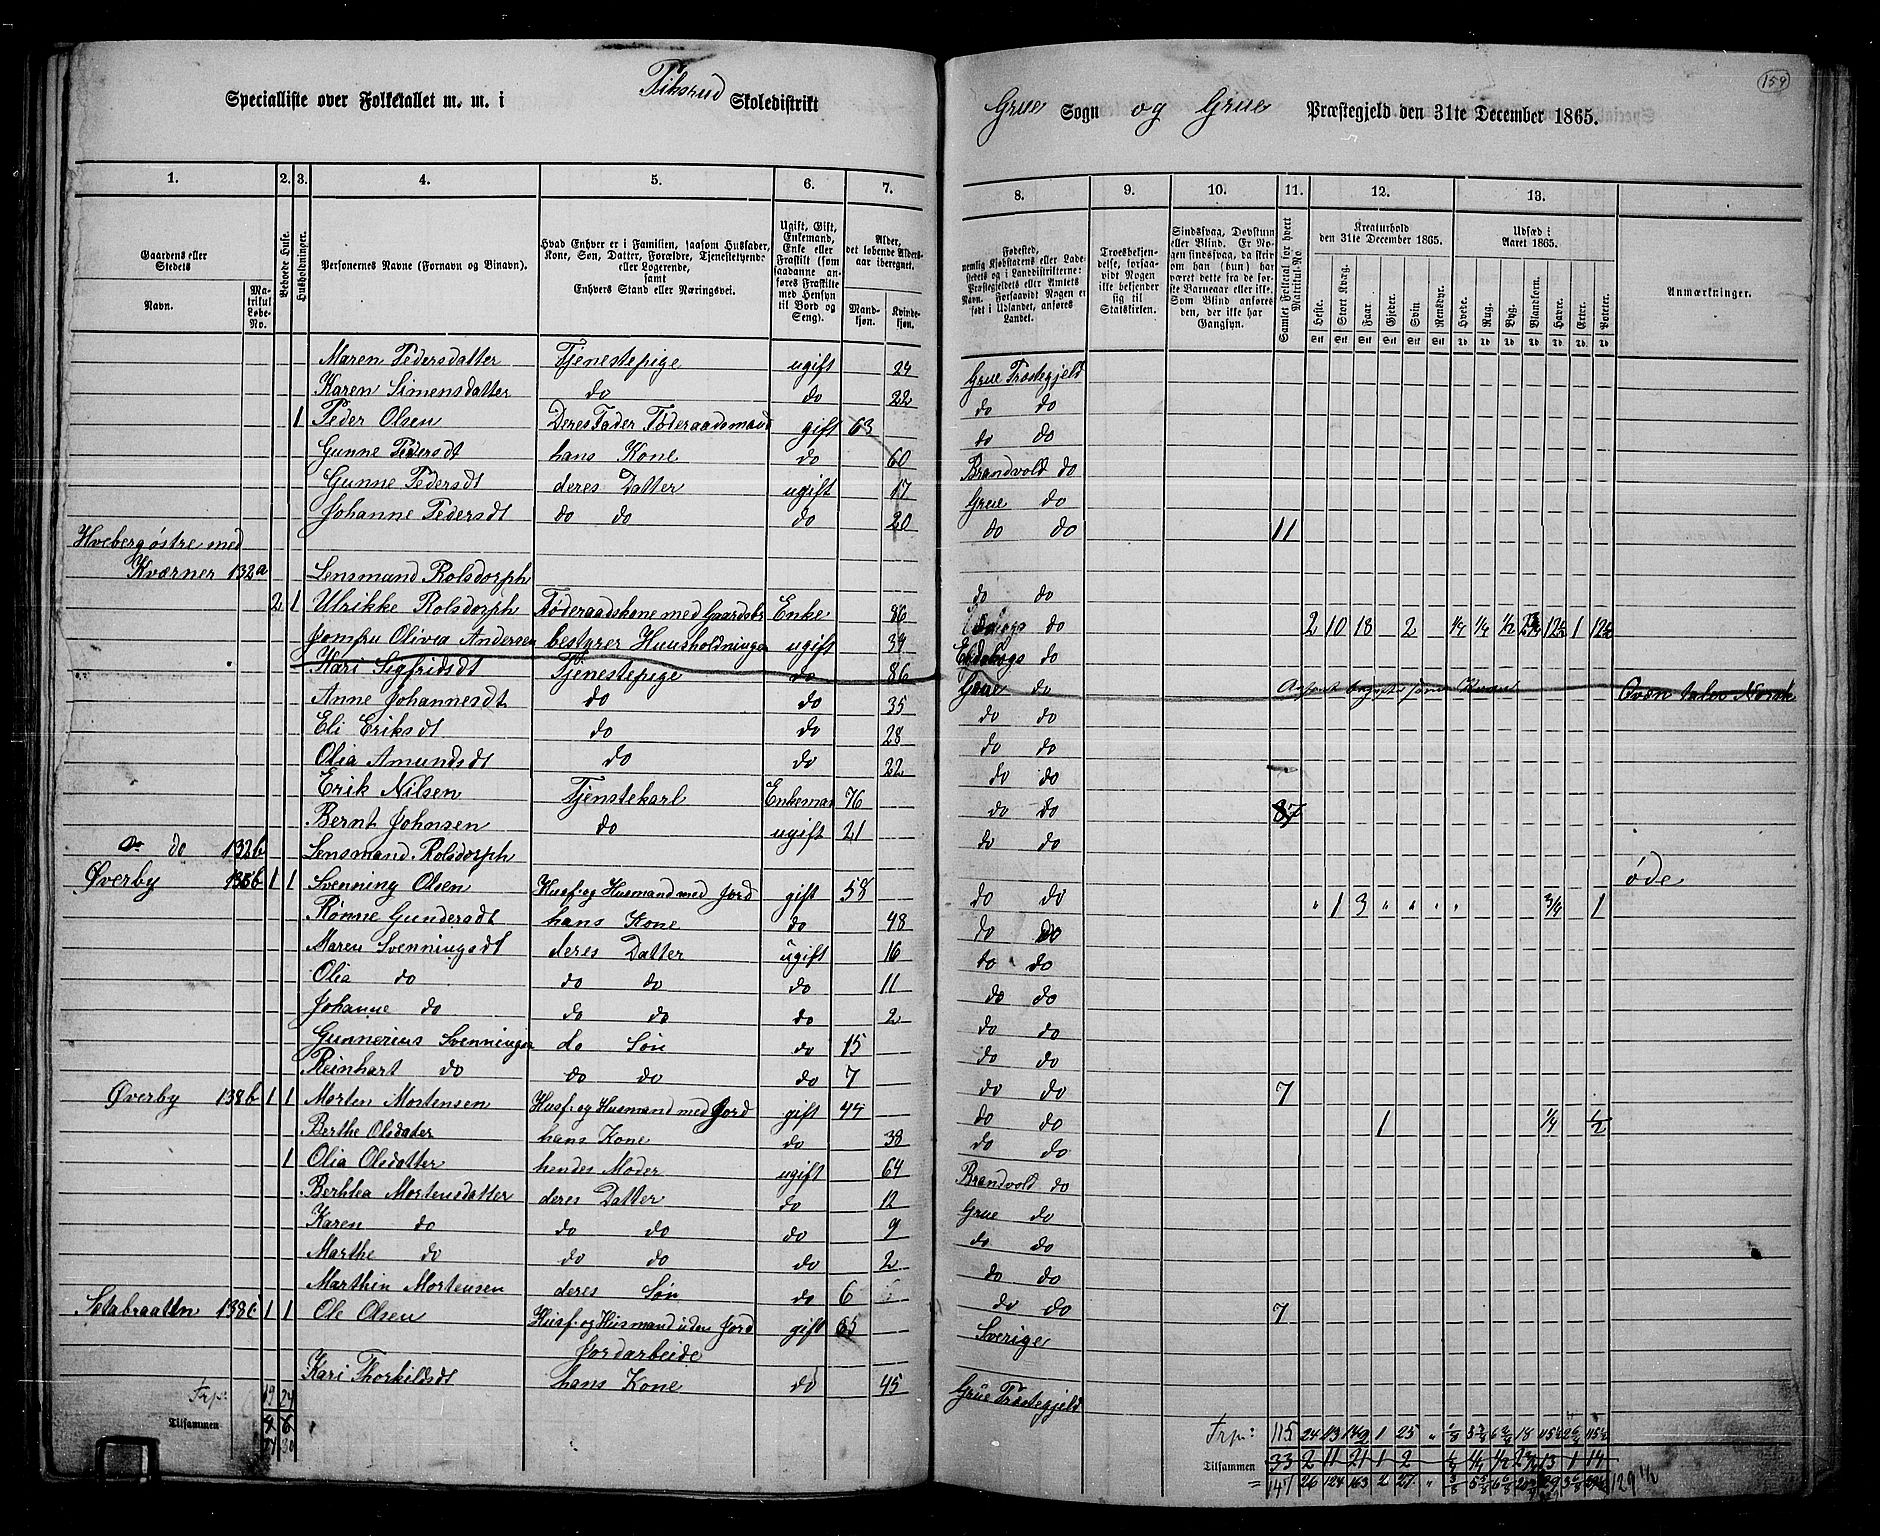 159
Specialliste over Folketallet m. m. i Skoledistrikt
Grue Sogn og Grue Præstegjeld den 31te December 1865.
1. 2. 3. 4. 5. 6. 7. 8. 9. 10. 11. 12. 13.
Gaardens eller Stedets
Navn.
Matrikul Løbe-No.
Beboede Huse.
Husholdninger.
Personernes Navne (Fornavn og Binavn).
Hvad Enhver er i Familien, saasom Husfader, Kone, Søn, Datter, Forældre, Tjenestetyende eller Logerende, samt Enhvers Stand eller Næringsvei.
Ugift, Gift, Enkemand, Enke eller Fraskilt (som saadanne anføres Fraskilte med Hensyn til Bord og Seng).
Alder, det løbende Aldersaar iberegnet.
Mandkjøn.
Kvindekjøn.
Fødested, nemlig Kjøbstadens eller Ladestedets og i Landdistrikterne: Præstegjeldets eller Amtets Navn. Forsaavidt Nogen er født i Udlandet, anføres Landet.
Troesbekjendelse, forsaavidt Nogen ikke bekjender sig til Statskirken.
Sindssvag, Døvstum eller Blind. Er Nogen sindssvag, da skriv om han (hun) har været dette fra de første Barneaar eller ikke. Som Blind anføres den, der ikke har Gangsyn.
Samlet Folketal for hvert Matrikul-No
Kreaturhold den 31te December 1865.
Heste. Stort Kvæg. Faar. Gjeder. Svin Rensdyr.
Udsæd i Aaret 1865.
Hvede. Rug. Byg. Blandkorn. Havre. Erter. Poteter.
Anmærkninger.
Maren Pedersdatter Tjenestepige ugift 24 Grue Præstegjeld
Karen Simensdatter do do 22 do do
1 Peder Olsen Deres Fader Føderaadsmand gift 63 do do
Gunne Pedersdt hans Kone do 60 Brandvold do
Gunne Pedersdt deres Datter ugift 17 Grue do
Johanne Pedersdt do do do 20 do do 11
Hveberg østre med
Kværner 132a Lensmand Rolsdorph
2 1 Ulrikke Rolsdorph Føderaadskone med Gaardsbr Enke 86 do 2 10 18 2 1/4 1/4 1/2 12½ 1 12½
Jomfru Olivia Andersen bestyrer Huusholdningen ugift 34 do
Kari Sigfridsdt Tjenestepige do 86 Grue do Qvæn taler Norsk
Anne Johannesdt do do 35 do do
Eli Eriksdt do do 28 do do
Olia Amundsdt do do 22 do do
Erik Nilsen Tjenstekarl Enkeman 76 do do
Bernt Johnsen do ugift 21 do do
do 132b Lensmand Rolsdorph øde
Øverby 135b 1 1 Svenning Olsen Husf. og Husmand med Jord gift 58 do do " 1 3 " " " " 3/4 1
Rønne Gundersdt hans Kone do 48 do do
Maren Svenningsdt deres Datter ugift 16 do do
Olia do do do do 11 do do
Johanne do do do do 2 do do
Gunnerius Svenningsen do Søn do 15 do do
Reinhart do do do do 7 do do 7
Øverby 138b 1 1 Morten Mortensen Husf. og Husmand med Jord gift 44 do do 1 1/4 1/2
Berthe Olsdater hans Kone do 38 do do
1 Olia Olsdatter hendes Moder ugift 64 Brandvold do
Berthea Mortensdatter deres Datter do 12 Grue do
Karen do do do do 9 do do
Marthe do do do do 2 do do
Marthin Mortensen deres Søn do 6 do do 7
138c 1 1 Ole Olsen Husf. og Husmand uden Jord gift 65 Sverige
Jordarbeide
Kari Thorkildsdt hans Kone do 45 Grue Præstegjeld
Frp: 19 24 Frp: 115 24 1 25
Tilsammen Tilsammen 33 2 11 21 1 2 13 1 14
30 = 147 26 124 163 2 27 129½